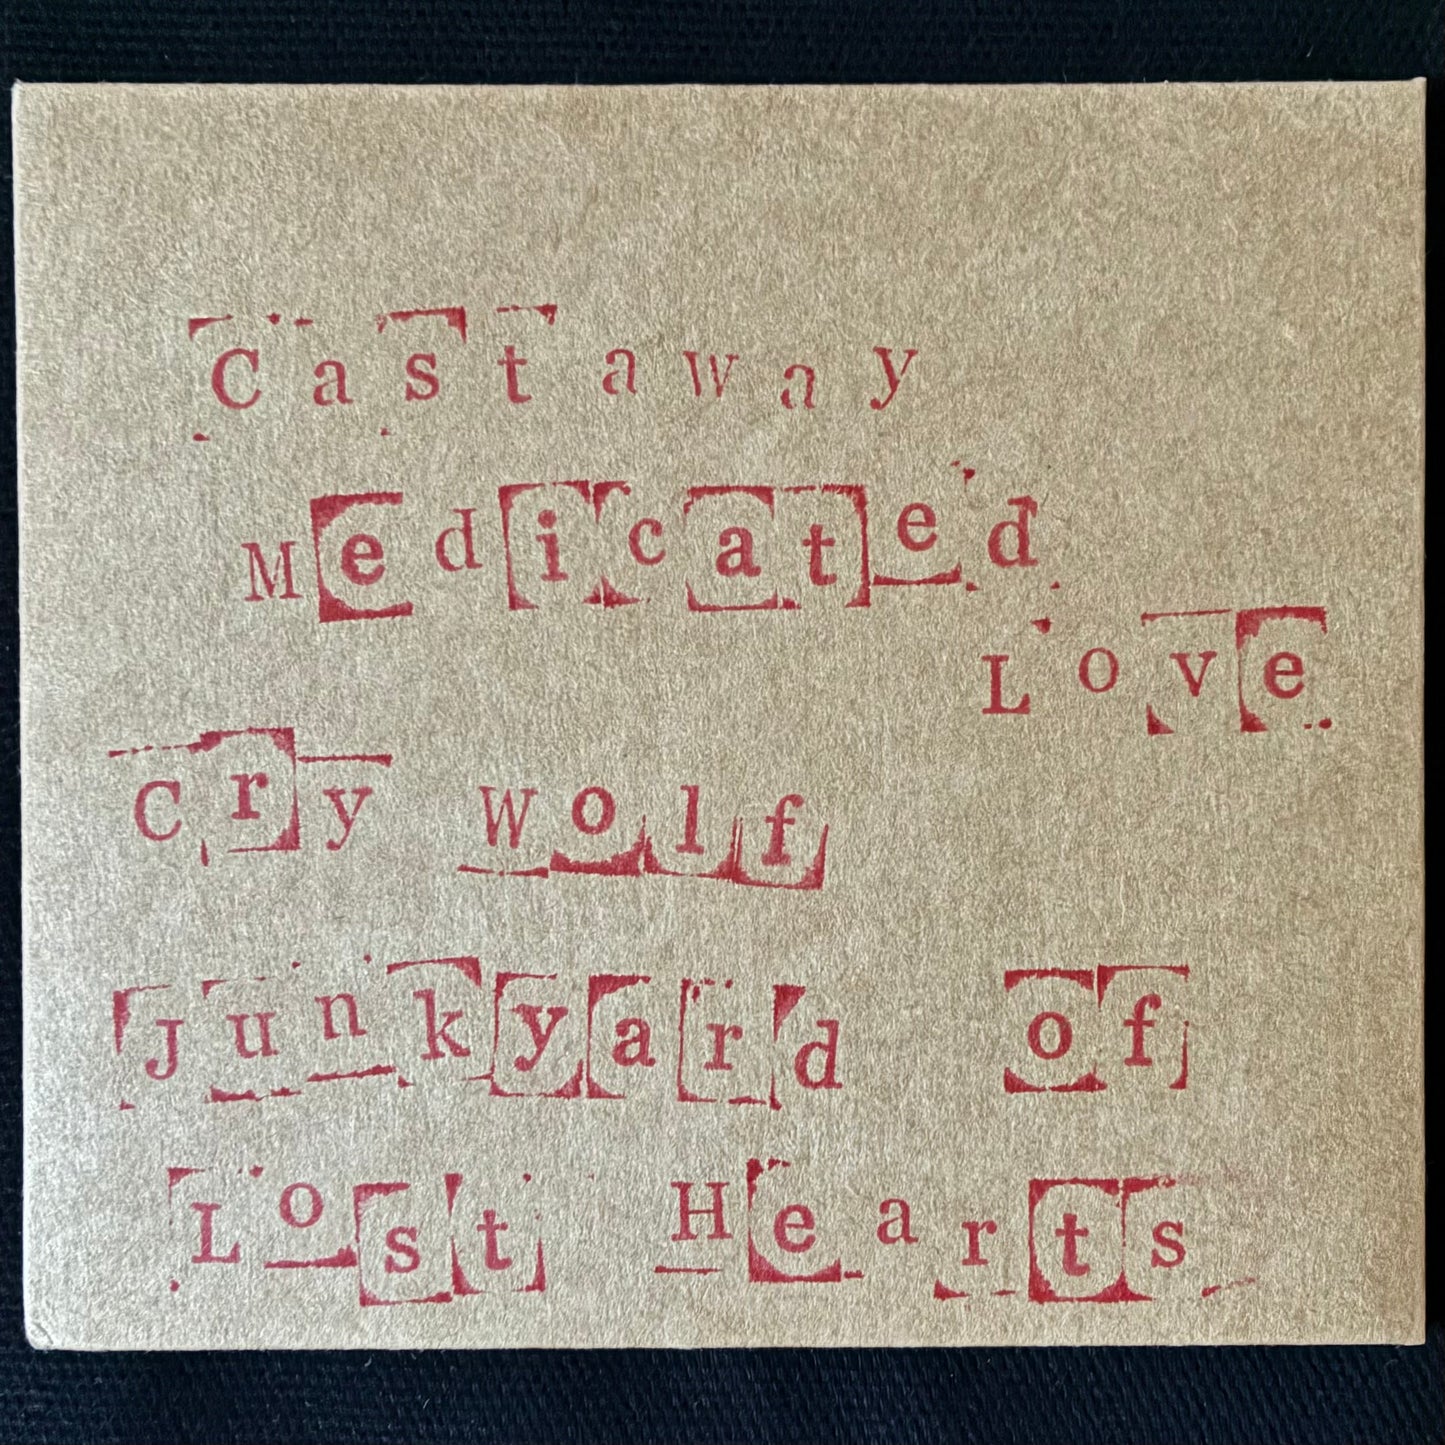 Castaway
Medicated
Love
Cry Wolf
Junkyard of
Lost Hearts